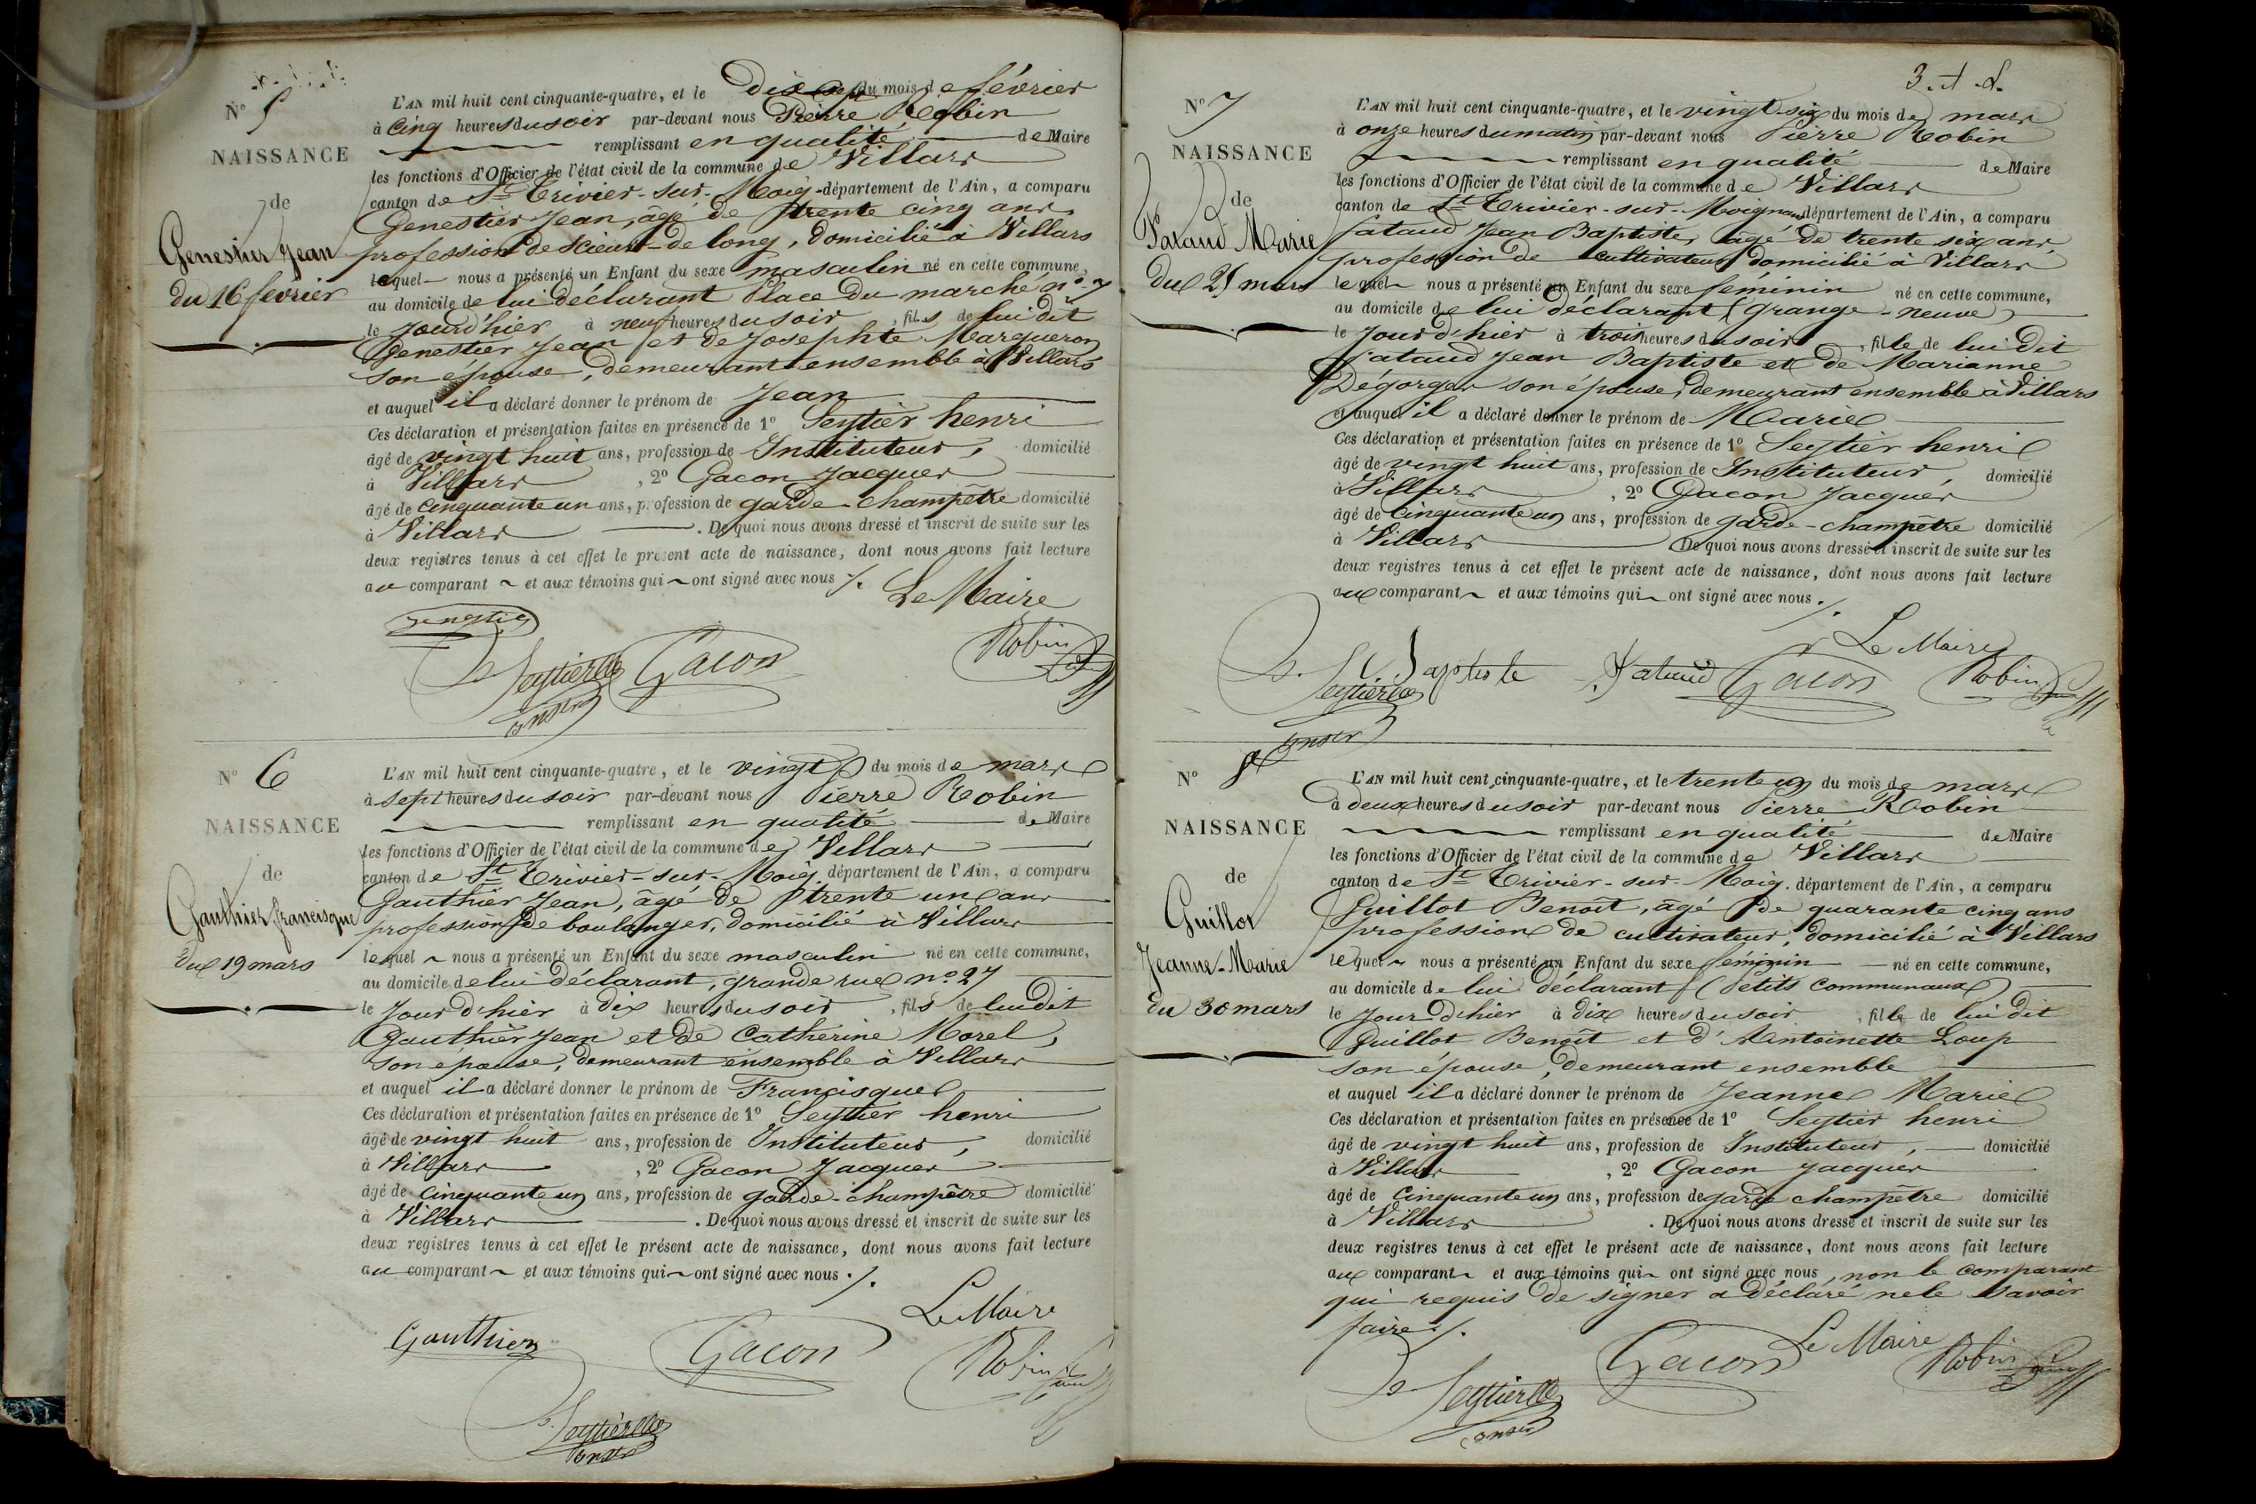 N° 5
NAISSANCE
de
Genestier Jean
du 16 février
L'AN mil huit cent cinquante-quatre, et le dix sept du mois de février
à cinq heures du soir par-devant nous Pierre Robin
remplissant en qualité de Maire
les fonctions d'Officier de l'état civil de la commune de Villars
canton de St Trivier-sur-Moig - département de l'Ain, a comparu
Genestier Jean, âgé de trente cinq ans
profession de Scieur-de long, domicilié à Villars
lequel nous a présenté un Enfant du sexe masculin né en cette commune,
au domicile de lui déclarant Place du marché n° 7
le jourd'hier à neuf heures du soir, fils de lui dit
Genestier Jean et de Josephte Margueron
son épouse, demeurant ensemble à Villars
et auquel il a déclaré donner le prénom de Jean
Ces déclaration et présentation faites en présence de 1° Seytier henri
âgé de vingt huit ans, profession de Instituteur, domicilié
à Villars, 2° Gacon Jacques
âgé de cinquante un ans, profession de garde-champêtre domicilié
à Villars. De quoi nous avons dressé et inscrit de suite sur les
deux registres tenus à cet effet le présent acte de naissance, dont nous avons fait lecture
au comparant et aux témoins qui ont signé avec nous ./.
Le Maire
genestier
Seytier
Gacon
Robin
N° 6
NAISSANCE
de
Gauthier francisque
du 19 mars
L'AN mil huit cent cinquante-quatre, et le vingt du mois de mars
à sept heures du soir par-devant nous Pierre Robin
remplissant en qualité de Maire
les fonctions d'Officier de l'état civil de la commune de Villars
canton de St Trivier-sur-Moig. département de l'Ain, a comparu
Gauthier Jean, âgé de trente un ans
profession de boulanger, domicilié à Villars
lequel nous a présenté un Enfant du sexe masculin né en cette commune,
au domicile de lui déclarant, grande rue n° 27
le jour d'hier à dix heures du soir, fils de lui dit
Gauthier Jean et de Catherine Morel,
son épouse, demeurant ensemble à Villars
et auquel il a déclaré donner le prénom de Francisque
Ces déclaration et présentation faites en présence de 1° Seytier henri
âgé de vingt huit ans, profession de Instituteur, domicilié
à Villars, 2° Gacon Jacques
âgé de cinquante un ans, profession de garde-champêtre domicilié
à Villars. De quoi nous avons dressé et inscrit de suite sur les
deux registres tenus à cet effet le présent acte de naissance, dont nous avons fait lecture
au comparant et aux témoins qui ont signé avec nous ./.
Le Maire
Gauthier
Gacon
Robin
Seytier
N° 7
NAISSANCE
de
Fataud Marie
du 25 mars
L'AN mil huit cent cinquante-quatre, et le vingt-six du mois de mars
à onze heures du matin par-devant nous Pierre Robin
remplissant en qualité de Maire
les fonctions d'Officier de l'état civil de la commune de Villars
canton de St Trivier-sur-Moignans département de l'Ain, a comparu
fataud Jean Baptiste, âgé de trente six ans
profession de cultivateur domicilié à Villars
lequel nous a présenté un Enfant du sexe féminin né en cette commune,
au domicile de lui déclarant (Grange-neuve)
le jour d'hier à trois heures du soir, fille de lui dit
fataud Jean Baptiste et de Marianne
Dégorger son épouse, demeurant ensemble à Villars
et auquel il a déclaré donner le prénom de Marie
Ces déclaration et présentation faites en présence de 1° Seytier henri
âgé de vingt huit ans, profession de Instituteur, domicilié
à Villars, 2° Gacon Jacques
âgé de cinquante un ans, profession de garde-champêtre domicilié
à Villars De quoi nous avons dressé et inscrit de suite sur les
deux registres tenus à cet effet le présent acte de naissance, dont nous avons fait lecture
au comparant et aux témoins qui ont signé avec nous ./.
Le Maire
Baptiste fataud
Seytier
Gacon
Robin
N° 8
NAISSANCE
de
Guillot
Jeanne-Marie
du 30 mars
L'AN mil huit cent cinquante-quatre, et le trente un du mois de mars
à deux heures du soir par-devant nous Pierre Robin
remplissant en qualité de Maire
les fonctions d'Officier de l'état civil de la commune de Villars
canton de St Trivier-sur-Moig. département de l'Ain, a comparu
Guillot Benoît, âgé de quarante cinq ans
profession de cultivateur, domicilié à Villars
lequel nous a présenté un Enfant du sexe féminin né en cette commune,
au domicile de lui déclarant (Petits Communaux)
le jour d'hier à dix heures du soir, fille de lui dit
Guillot Benoît et d'Antoinette Loup
son épouse, demeurant ensemble
et auquel il a déclaré donner le prénom de Jeanne Marie
Ces déclaration et présentation faites en présence de 1° Seytier henri
âgé de vingt huit ans, profession de Instituteur, domicilié
à Villars, 2° Gacon Jacques
âgé de cinquante un ans, profession de garde champêtre domicilié
à Villars. De quoi nous avons dressé et inscrit de suite sur les
deux registres tenus à cet effet le présent acte de naissance, dont nous avons fait lecture
au comparant et aux témoins qui ont signé avec nous, non le comparant
qui requis de signer a déclaré ne le savoir
faire ./.
Le Maire
Seytier
Gacon
Robin